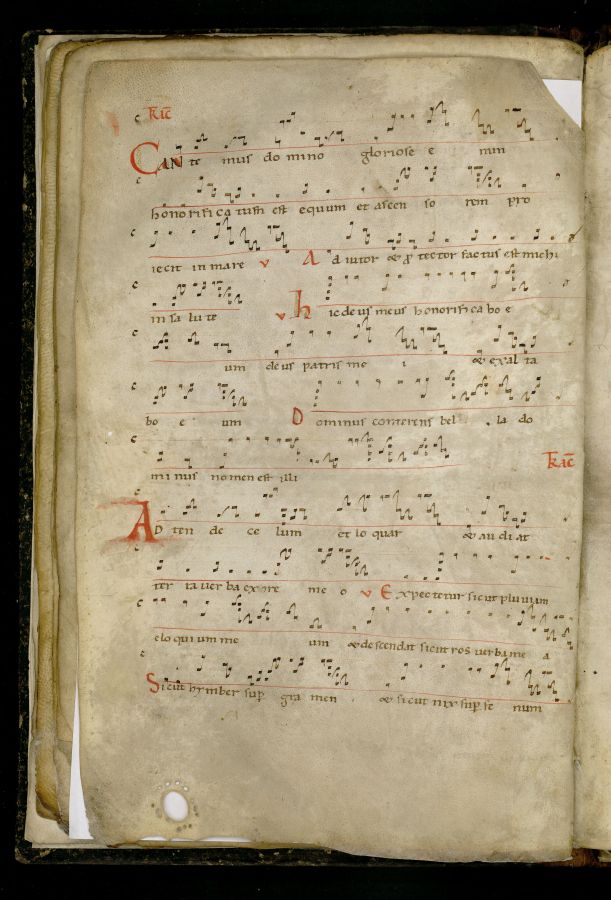 TRAC
CANte mus do mino gloriose e nim
honorifica tus est equum et ascen so rem pro
iecit in mare v A d iutor & p tector factus est michi
in sa lu te v h ic deus meus honorifica bo e
um deus patris me i & exal ta
bo e um D ominus conterens bel la do
mi nus nomen est illi
TRAC
AD ten de ce lum et lo quar & au di at
ter ra ver ba ex ore me o v E xpectetur sicut pluviam
eloqui um me um & descendat sicut ros verba me a
Sicut hymber sup gra men & sicut nix sup fe num